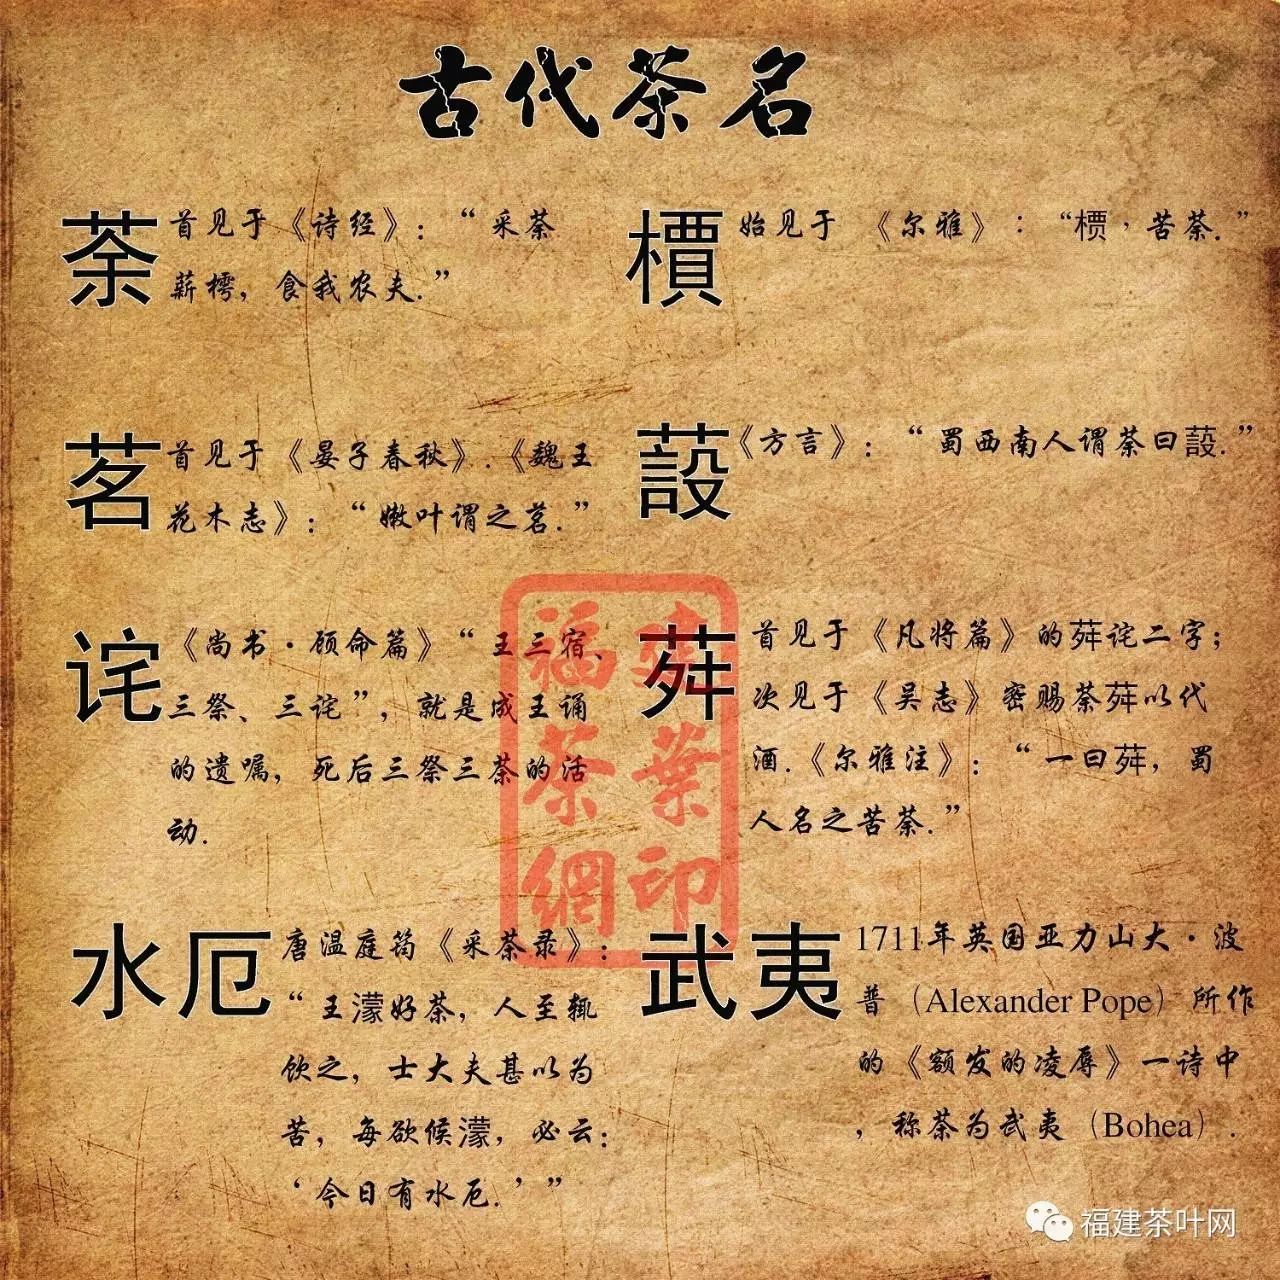 古代茶名
荼
首见于《诗经》：“采荼
薪樗，食我农夫.”
槚
始见于《尔雅》：“槚，苦荼.”
茗
首见于《晏子春秋》.《魏王
花木志》：“嫩叶谓之茗.”
蔎
《方言》：“蜀西南人谓荼曰蔎.”
诧
《尚书·顾命篇》“王三宿、
三祭、三诧”，就是成王诵
的遗嘱，死后三祭三茶的活
动.
荈
首见于《凡将篇》的荈诧二字；
次见于《吴志》密赐荼荈以代
酒.《尔雅注》：“一曰荈，蜀
人名之苦荼.”
水厄
唐温庭筠《采茶录》：
“王濛好茶，人至辄
饮之，士大夫甚以为
苦，每欲候濛，必云：
‘今日有水厄.’”
武夷
1711年英国亚力山大·波
普（Alexander Pope）所作
的《额发的凌辱》一诗中
，称茶为武夷（Bohea）.
福建
茶葉
網印
福建茶叶网